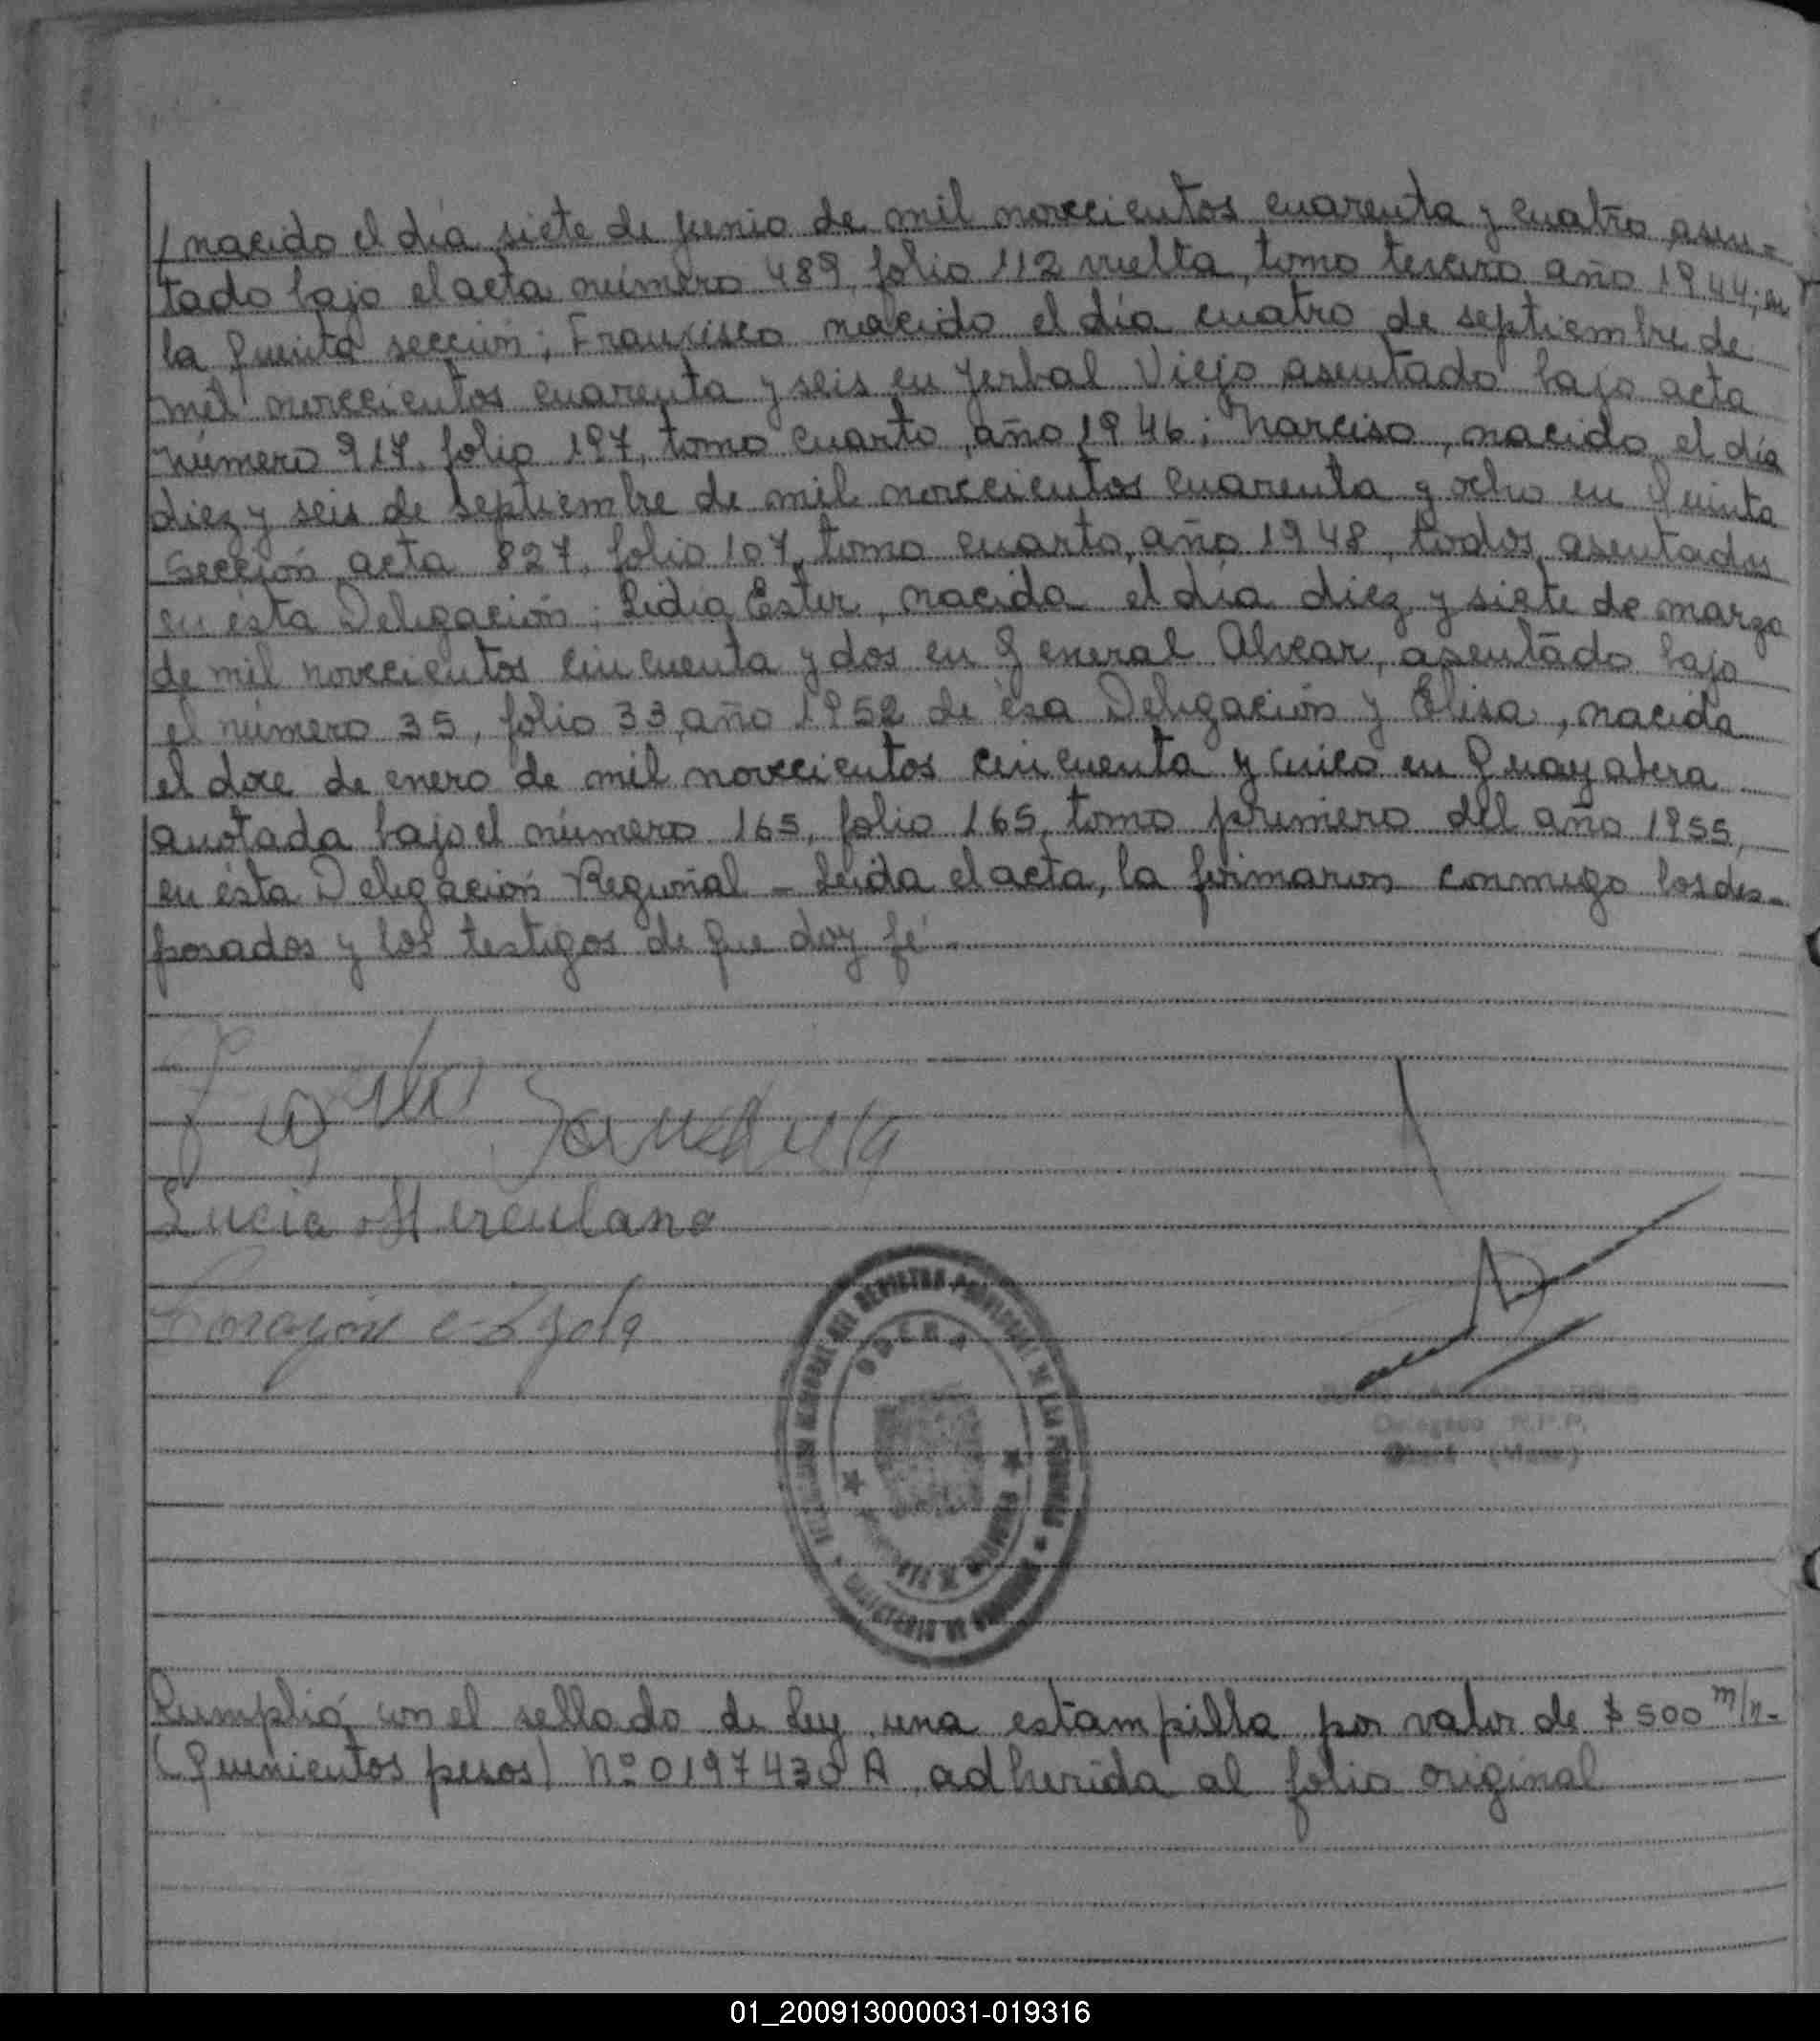 /nacido el día siete de junio de mil novecientos cuarenta y cuatro asen-
tado bajo el acta número 489, folio 112 vuelta, tomo tercero año 1944; en
la Quinta sección; Francisco nacido el día cuatro de septiembre de
mil novecientos cuarenta y seis en Yerbal Viejo asentado bajo acta
número 917, folio 197, tomo cuarto, año 1946; Narciso, nacido el día
diez y seis de septiembre de mil novecientos cuarenta y ocho en Quinta
Sección acta 827, folio 107, tomo cuarto, año 1948, todos asentados
en ésta Delegación; Lidia Ester, nacida el día diez y siete de marzo
de mil novecientos cincuenta y dos en General Alvear, asentado bajo
el número 35, folio 33, año 1952 de ésa Delegación y Elisa, nacida
el doce de enero de mil novecientos cincuenta y cinco en Guayabera
anotada bajo el número 165, folio 165, tomo primero del año 1955,
en ésta Delegación Regional - Leida el acta, la firmaron conmigo los des-
posados y los testigos de que doy fé
Lucia Herculano
OBERA
Delegado R.P.P.
Oberá (Mnes)
Cumplió con el sellado de Ley una estampilla por valor de $ 500 m/n-
(Quinientos pesos) Nº 0197430 A, adherida al folio original
01_200913000031-019316